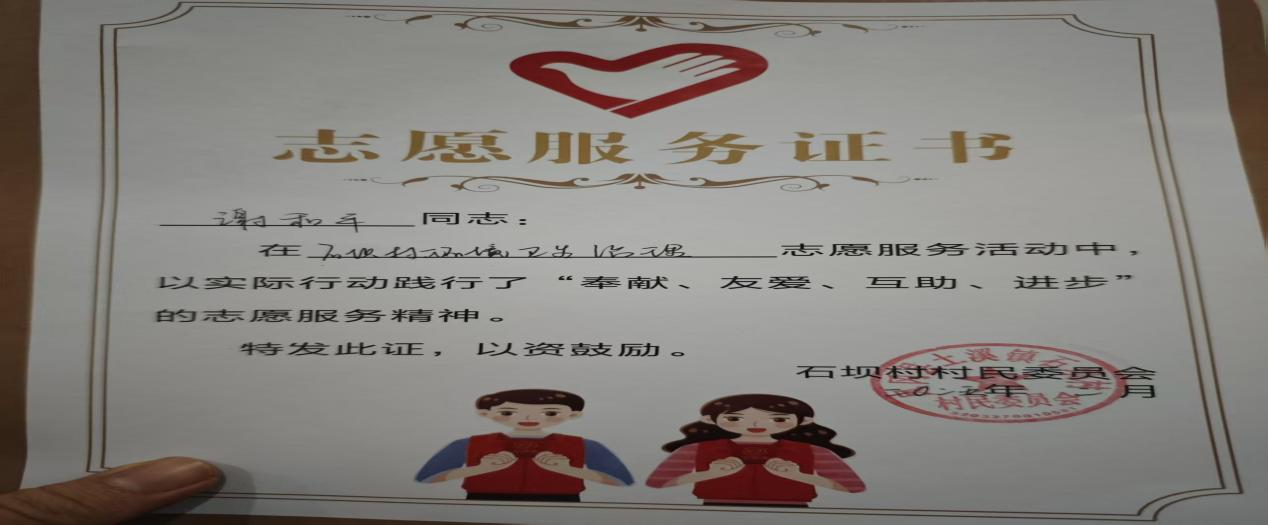 志愿服务证书
谢和平同志：
在石坝村环境卫生治理志愿服务活动中，
以实际行动践行了“奉献、友爱、互助、进步”
的志愿服务精神。
特发此证，以资鼓励。
石坝村村民委员会
年 月
土溪镇石
村民委员会